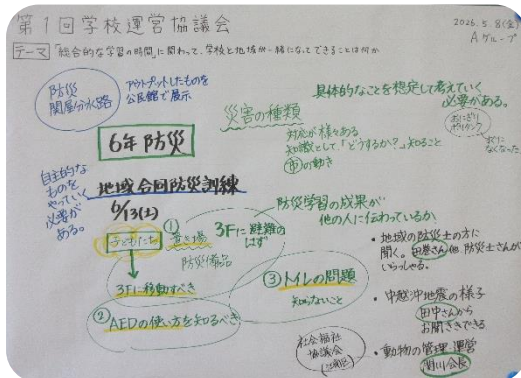 第1回学校運営協議会
2026.5.8(金)
Aグループ
テーマ 「総合的な学習の時間」に関わって、学校と地域が一緒になってできることは何か
防災
関屋分水路
アウトプットしたものを
公民館で展示
6年 防災
災害の種類
対応が様々ある
知識として「どうするか?」知ること
市の動き
具体的なことを想定して考えていく
必要がある。
おにぎり
ポリタンク
すぐに
なくなった
自主的な
ものを
やっていく
必要が
ある。
地域合同防災訓練
6/13(土)
子どもたち
3Fに移動すべき
① 置き場
防災備品
3Fに避難の
はず
② AEDの使い方を知るべき
③ トイレの問題
知らないこと
防災学習の成果が
他の人に伝わっているか
・地域の防災士の方に
聞く。 他 防災士さんが
いらっしゃる。
・中越沖地震の様子
田中さんから
お聞きできる
・動物の管理 運営
関川会長
社会福祉
協議会